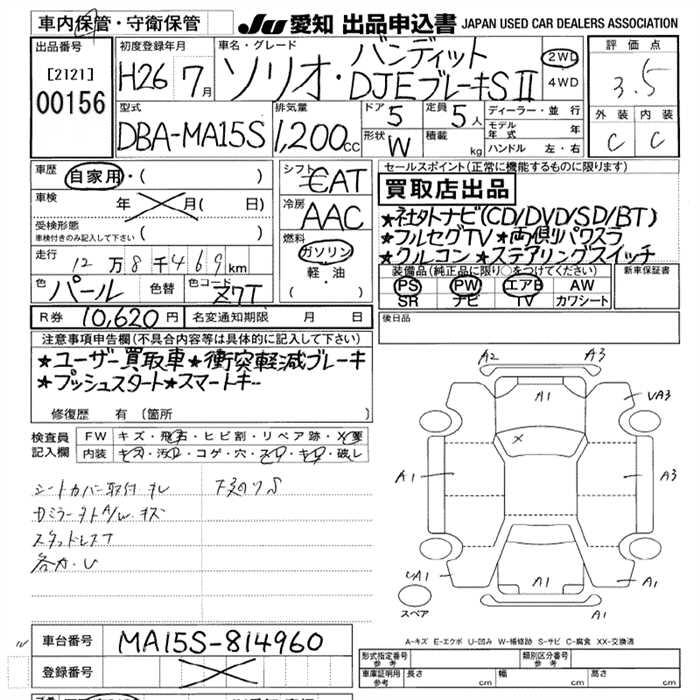 車内保管・守衛保管
JU 愛知 出品申込書 JAPAN USED CAR DEALERS ASSOCIATION
出品番号
[2121]
00156
初度登録年月
H26 7月
車名・グレード
バンディット
ソリオ・DJEブレーキSⅡ
2WD
4WD
評価点
3.5
外装 内装
C C
型式
DBA-MA15S
排気量
1,200cc
ドア 5
定員 5人
形状 W
積載 kg
ディーラー・並行
モデル年式 年
ハンドル 左・右
車歴
自家用・( )
車検 年 月( 日)
受検形態
車検付きのみ記入して下さい ( )
走行 12万8千469km
色 パール 色替 色コード Z7T
シフト CAT
冷房 AAC
燃料
ガソリン
軽・油
( )
セールスポイント(正常に機能するものに限ります)
買取店出品
★社外ナビ(CD/DVD/SD/BT)
★フルセグTV ★両側パワスラ
★クルコン ★ステアリングスイッチ
装備品(純正品に限り○をつけてください)
PS PW エアB AW
SR ナビ TV カワシート
新車保証書
R券 10,620円 名変通知期限 月 日
後日品
注意事項申告欄(不具合内容等は具体的に記入して下さい)
★ユーザー買取車★衝突軽減ブレーキ
★プッシュスタート★スマートキー
修復歴 有 (箇所 )
検査員
記入欄
FW キズ・飛石・ヒビ割・リペア跡・X要
内装 キズ・汚レ・コゲ・穴・スレ・キレ・破レ
シートカバー取付ヲレ
カミラーヲトA/w キズ
スタッドレス
各カ・U
A2 A3
A1
UA3
A1
A1
A1
UA1
A1
A1
スペア
A-キズ E-エクボ U-凹み W-補修跡 S-サビ C-腐食 XX-交換済
車台番号 MA15S-814960
登録番号
形式指定番号
参考
類別区分番号
参考
車庫証明用
参考
長さ cm 幅 cm 高さ cm